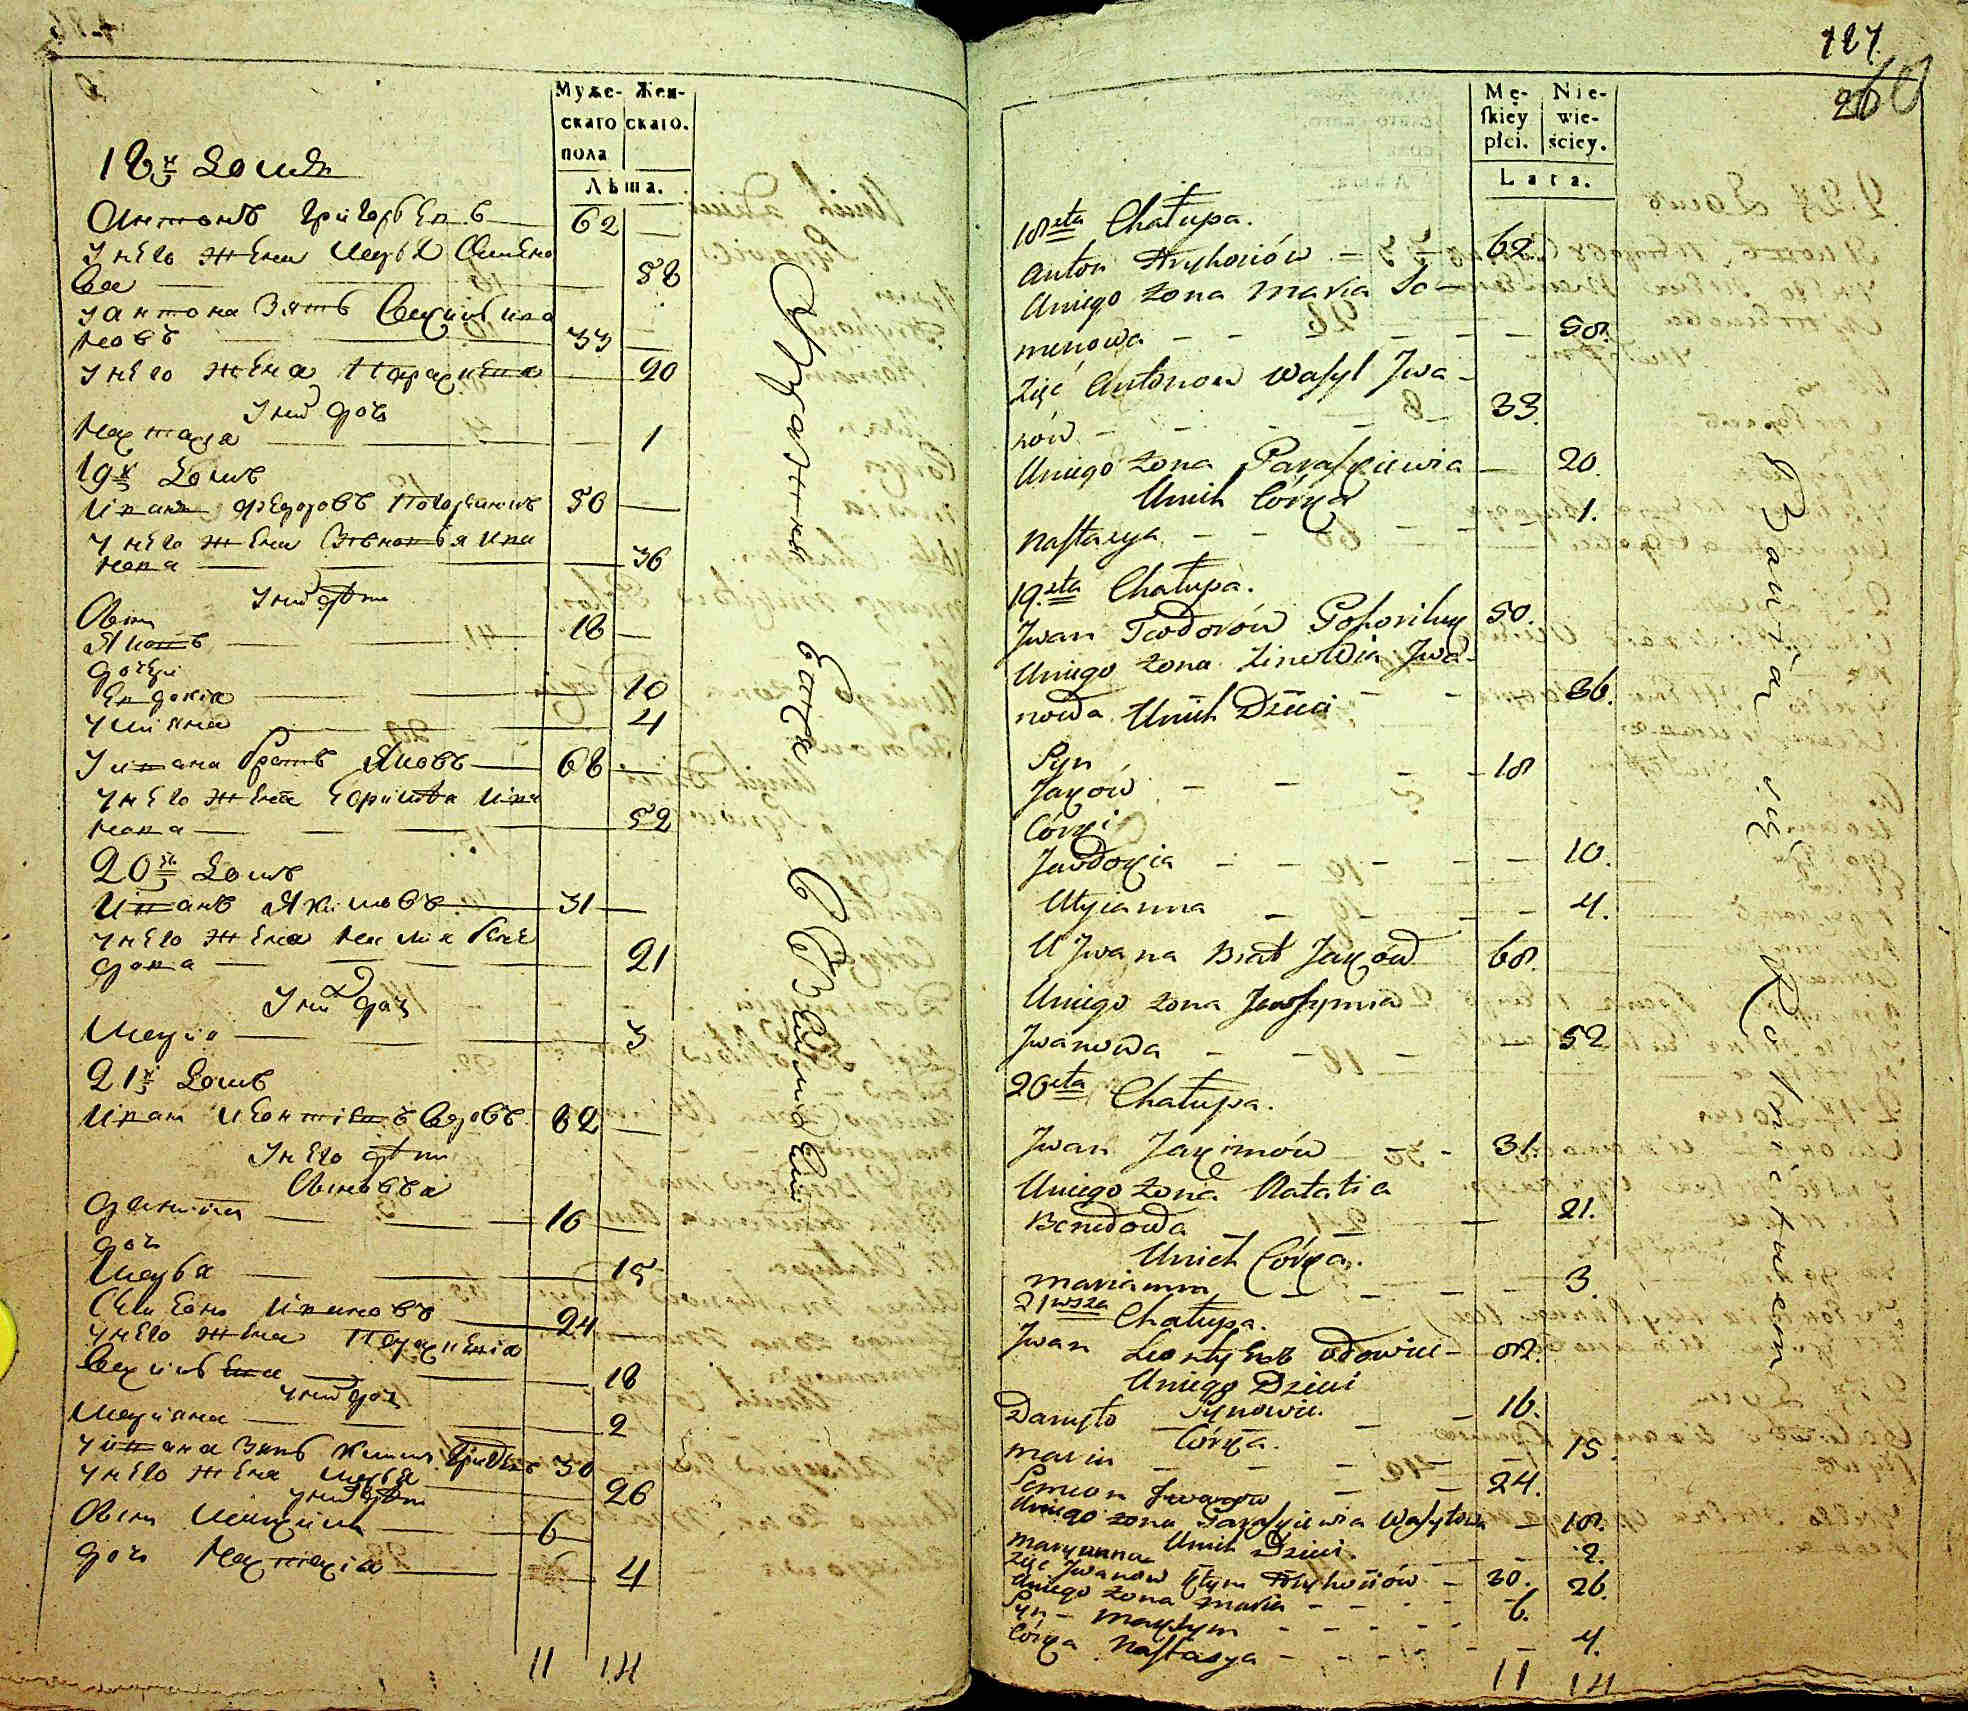 Муже-
скаго
пола
Жен-
скаго.
Лѣта.
18й Домъ
Антонъ Григорьевъ 62
У него жена Марья Семено
ва 58
У Антона зять Василь Ива
новъ 33
У него жена Параскева 20
У них дочь
Настася 1
19й Домъ
Иванъ Федоровъ 50
У него жена Зѣновія Ива
нова 36
У них дѣти
Сынъ
Яковъ 18
Дочери
Евдокія 10
Уліяна 4
У Ивана братъ Яковъ 68
У него жена Ива
нова 52
20й Домъ
Иванъ Якимовъ 31
У него жена
21
У них дочь
3
21й Домъ
Иванъ Леонтіевъ вдовъ 82
У него дѣти
Сыновья
Данила 16
дочь
Марья 15
Семенъ Ивановъ 24
У него жена Параскевія
Васильева 18
У них дочь
Маріяна 2
У Ивана зять 30
У него жена Марья 26
У них дѣти
Сынъ Максимъ 6
дочь Настасія 4
11 14
127
260
Mę-
skiey
płci.
Nie-
wie-
ściey.
Lata.
18sta Chałupa.
Anton Hryhoriów 62.
Uniego żona Maria Se-
menowa 58.
Zięć Antonow Wasyl Jwa-
nów 33.
Uniego żona Paraskiewia 20.
Unich Córka
Nastasya 1.
19sta Chałupa.
Jwan Teodorów Pohoriluk 50.
Uniego żona Zinowia Jwa-
nowa 36.
Unich Dzieci
Syn
Jaków 18
Córki
Jawdokia 10.
Ulyianna 4.
U Jwana Brat Jaków 68.
Uniego żona Jewfymia
Jwanowa 52
20sta Chałupa.
Jwan Jakimów 31.
Uniego żona Natalia
Benedowa 21.
Unich Córka.
Marianna 3.
21wsza Chałupa.
Jwan Leontyew wdowiec 82.
Uniego Dzieci
Synowie.
Danyło 16.
Córka.
Maria 15.
Semion Jwanow 24.
Uniego żona Paraskiewia Wasylowa 18.
Unich Dzieci.
Maryanna 2.
Zięć Jwanow Hryhoriów 30.
Uniego żona Maria 26.
Syn Maksym 6.
Córka Nastasya 4.
11 14